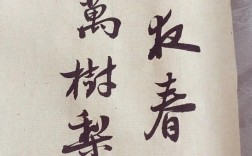 夜春
萬樹梨